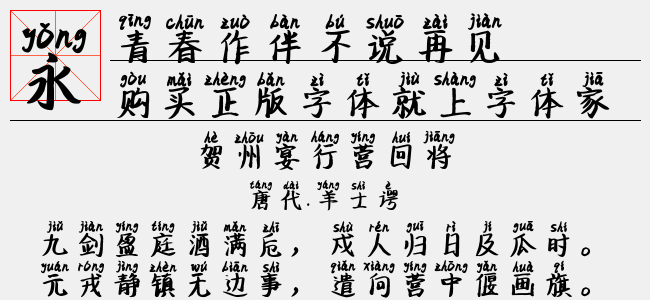 yǒng
永
qīng chūn zuò bàn bú shuō zài jiàn
青春作伴不说再见
gòu mǎi zhèng bǎn zì tǐ jiù shàng zì tǐ jiā
购买正版字体就上字体家
hè zhōu yàn háng yíng huí jiāng
贺州宴行营回将
táng dài yáng shì è
唐代.羊士谔
jiǔ jiàn yíng tíng jiǔ mǎn zhī shù rén guī rì jí guā shí
九剑盈庭酒满卮，戍人归日及瓜时。
yuán róng jìng zhèn wú biān shì qiǎn xiàng yíng zhōng yǎn huà qí
元戎静镇无边事，遣向营中偃画旗。